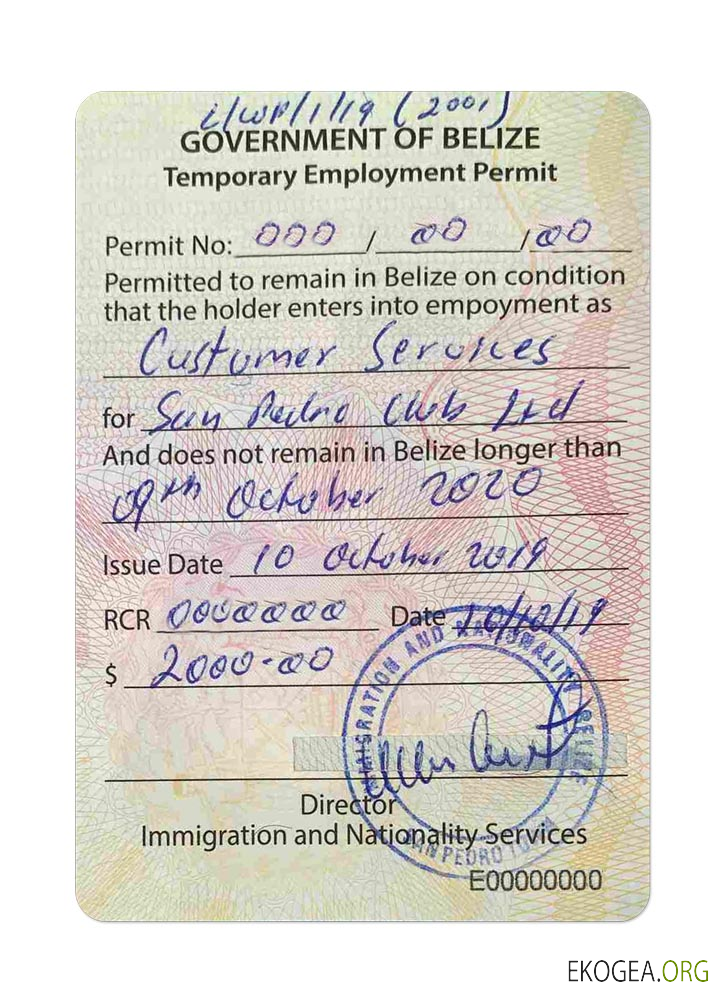 L/WP/1/19 (2001)
GOVERNMENT OF BELIZE
Temporary Employment Permit
Permit No: 000 / 00 / 00
Permitted to remain in Belize on condition
that the holder enters into empoyment as
Customer Services
for San Pedro Club Ltd
And does not remain in Belize longer than
09th October 2020
Issue Date 10 October 2019
RCR 0000000 Date 10/10/19
$ 2000-00
IMMIGRATION AND NATIONALITY BELIZE
SAN PEDRO TOWN
Director
Immigration and Nationality Services
E00000000
EKOGEA.ORG